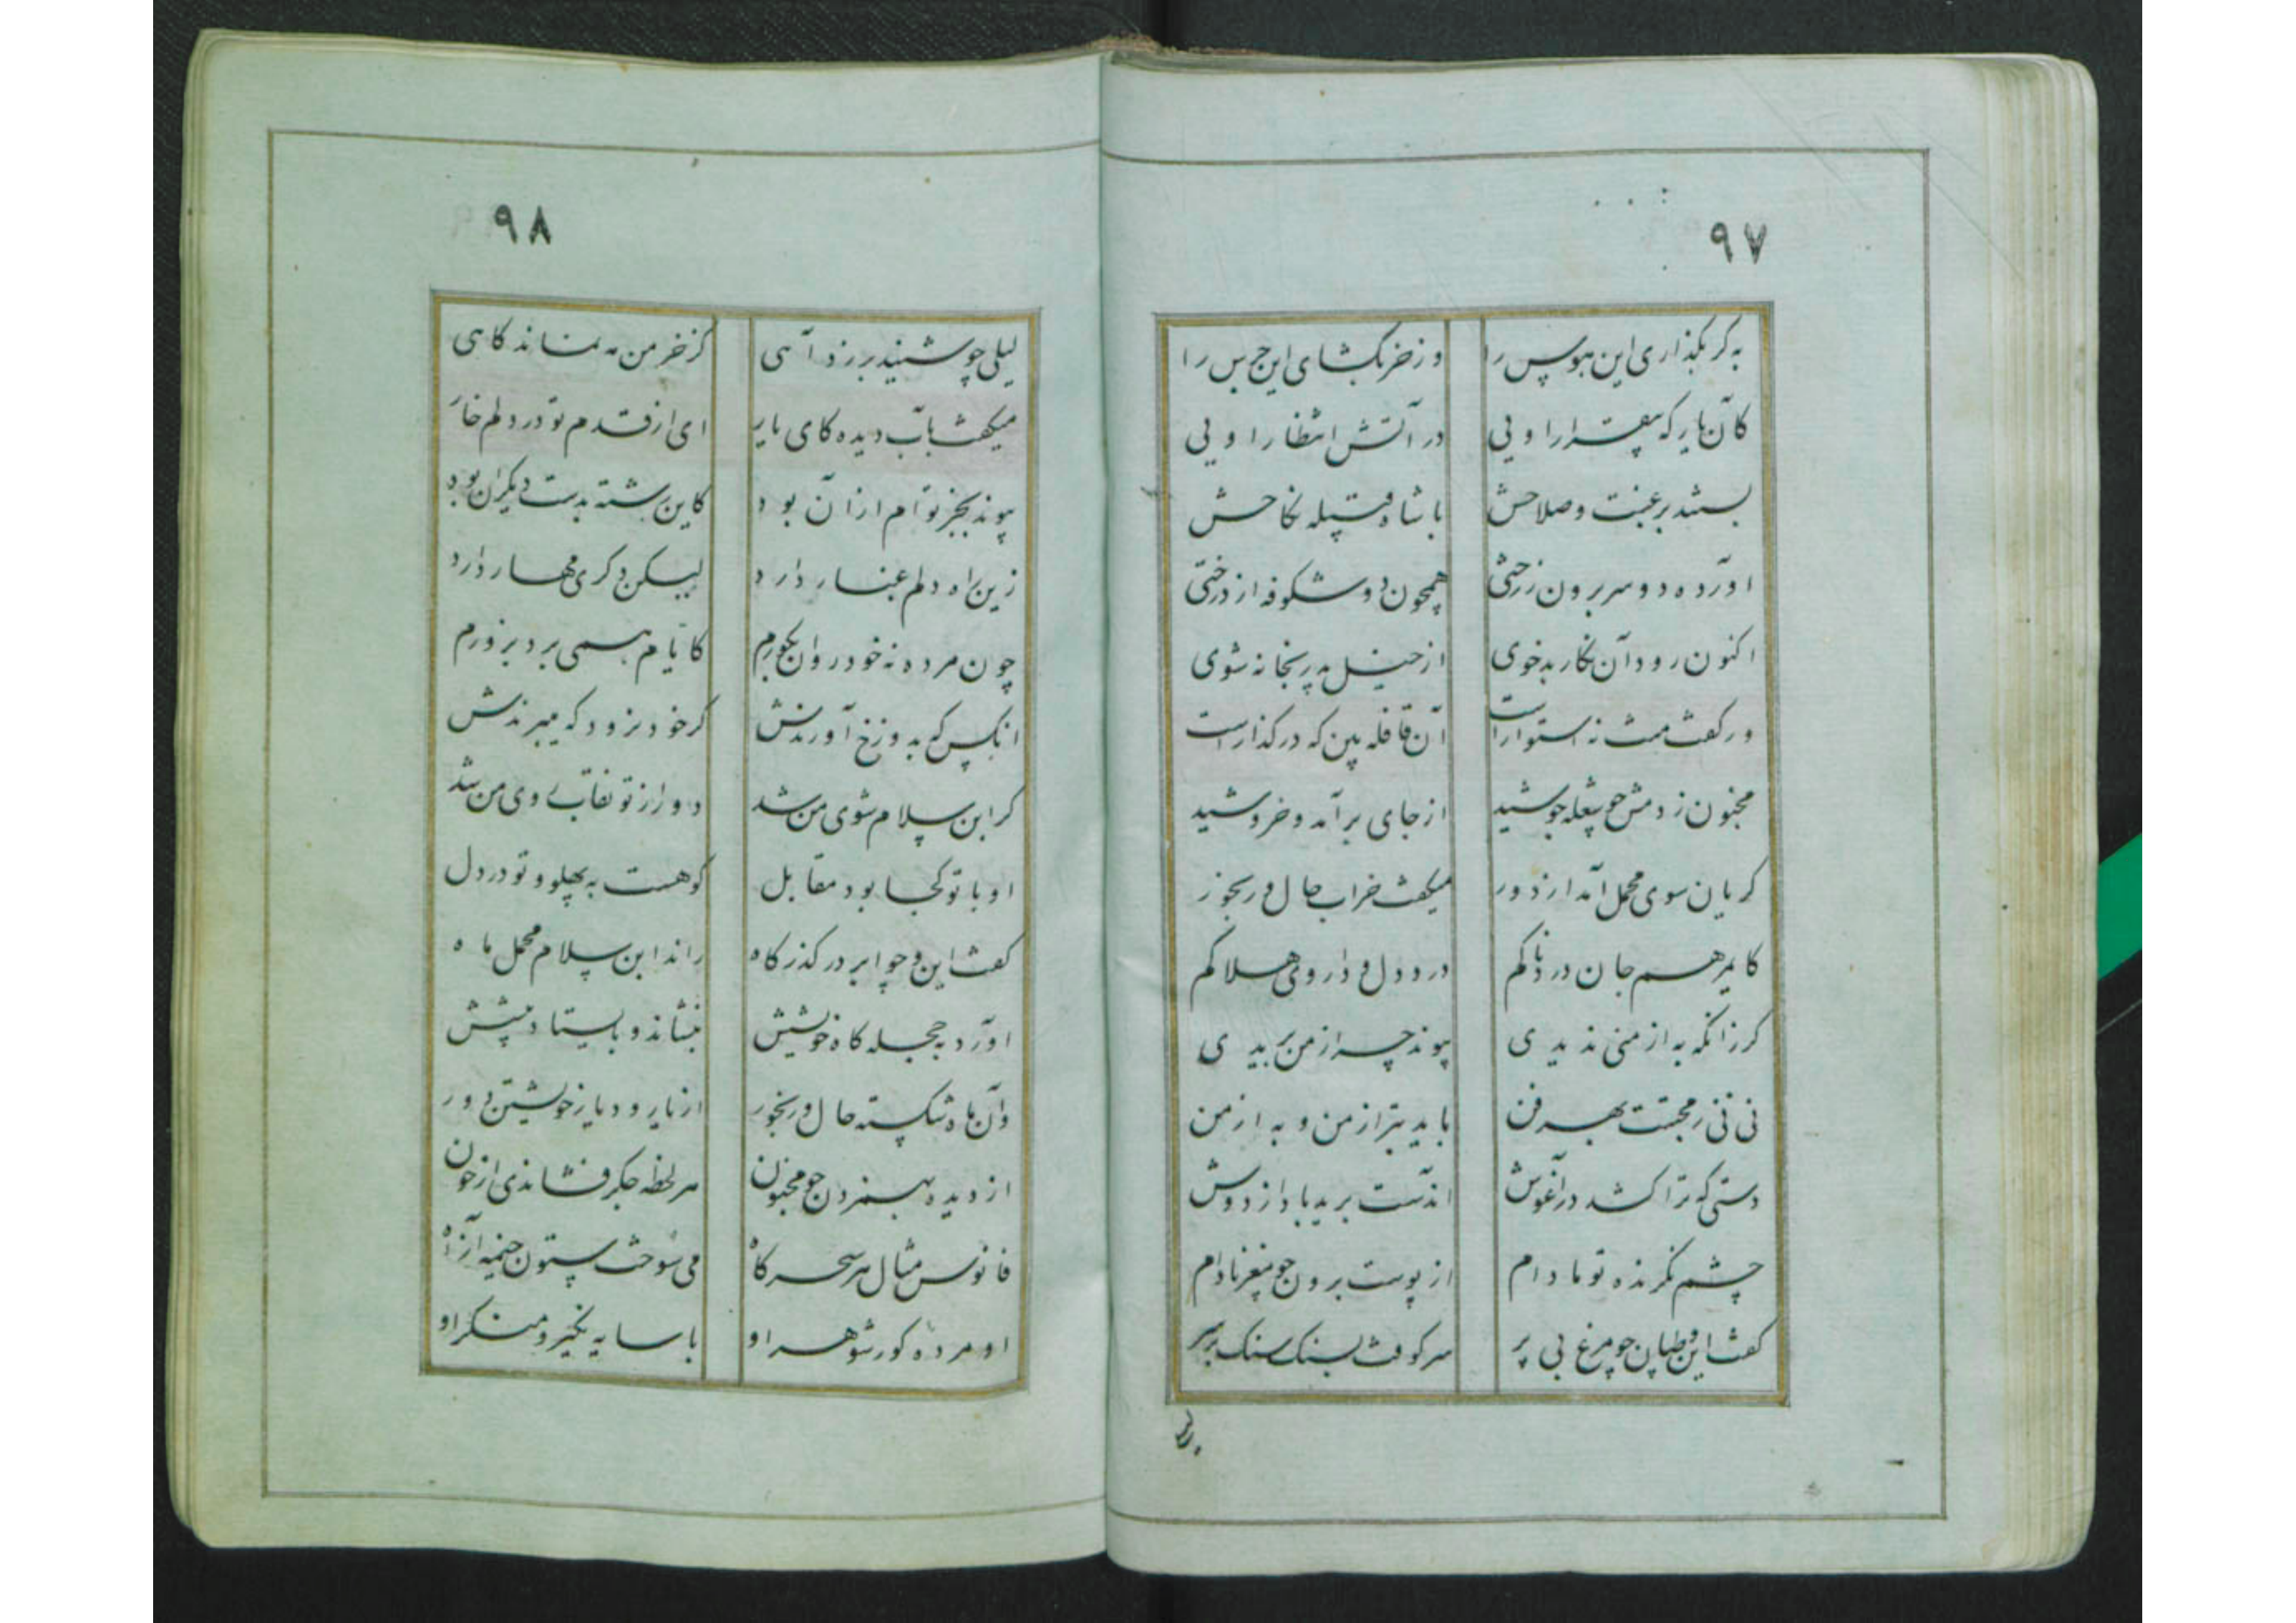 ۹۷
به گر بگذاری این هوس را وز خر بگشای این جرس را
کان یار که بیقرار اویی در آتش انتظار اویی
بستند برغبت و صلاحش با شاه قبیله نکاحش
اورده دو سر برون ز رختی همچون دو شکوفه از درختی
اکنون رود آن نکار بدخوی از خیل پدر بخانه شوی
ور کفت منت نه استوارست آن قافله بین که در کذارست
مجنون ز دمش جو شعله جوشید از جای برآمد و خروشید
کریان سوی محمل آمد از دور میکفت خراب حال و رنجور
کای مرهم جان دردناکم درد دل و داروی هلاکم
کر زانکه به از منی ندیدی پیوند چرا ز من بریدی
نی نی ز محبتت بهر فن باید بتر از من و به از من
دستی که ترا کشد در آغوش اندست بریده باد از دوش
چشم نکرنده تو مادام از پوست برون جو مغز بادام
کفت این و طپان جو مرغ بی پر سر کوفت بسنک و سنک بر سر
۹۸
لیلی چو شنید برزد آهی کز خرمن مه نماند کاهی
میکفت بآب دیده کای یار ای از قدم تو در دلم خار
پیوند بجز توام از آن بود کاین رشته بدست دیکران بود
زین راه دلم غبار دارد لیکن دکری مهار دارد
چون مرده نه خود روان بکورم کایام همی برد بزورم
انکس که بدوزخ آورندش کر خود نرود که میبرندش
کر ابن سلام شوی من شد دور از تو نقاب روی من شد
او با تو کجا بود مقابل کو هست به پهلو و تو در دل
کفت این و چو ابر در کذرکاه راند ابن سلام محمل ماه
اورد بحجله کاه خویش بنشاند و بایستاد پیشش
وآن ماه شکسته حال و رنجور از یار و دیار خویشتن دور
از دیده بهر فن جو مجنون هر لحظه جکر فشاندی از خون
فانوس مثال هر سحرکاه می سوخت ستون خیمه از آه
او مرده و کور شوهر او با سایه نکیر و منکر او